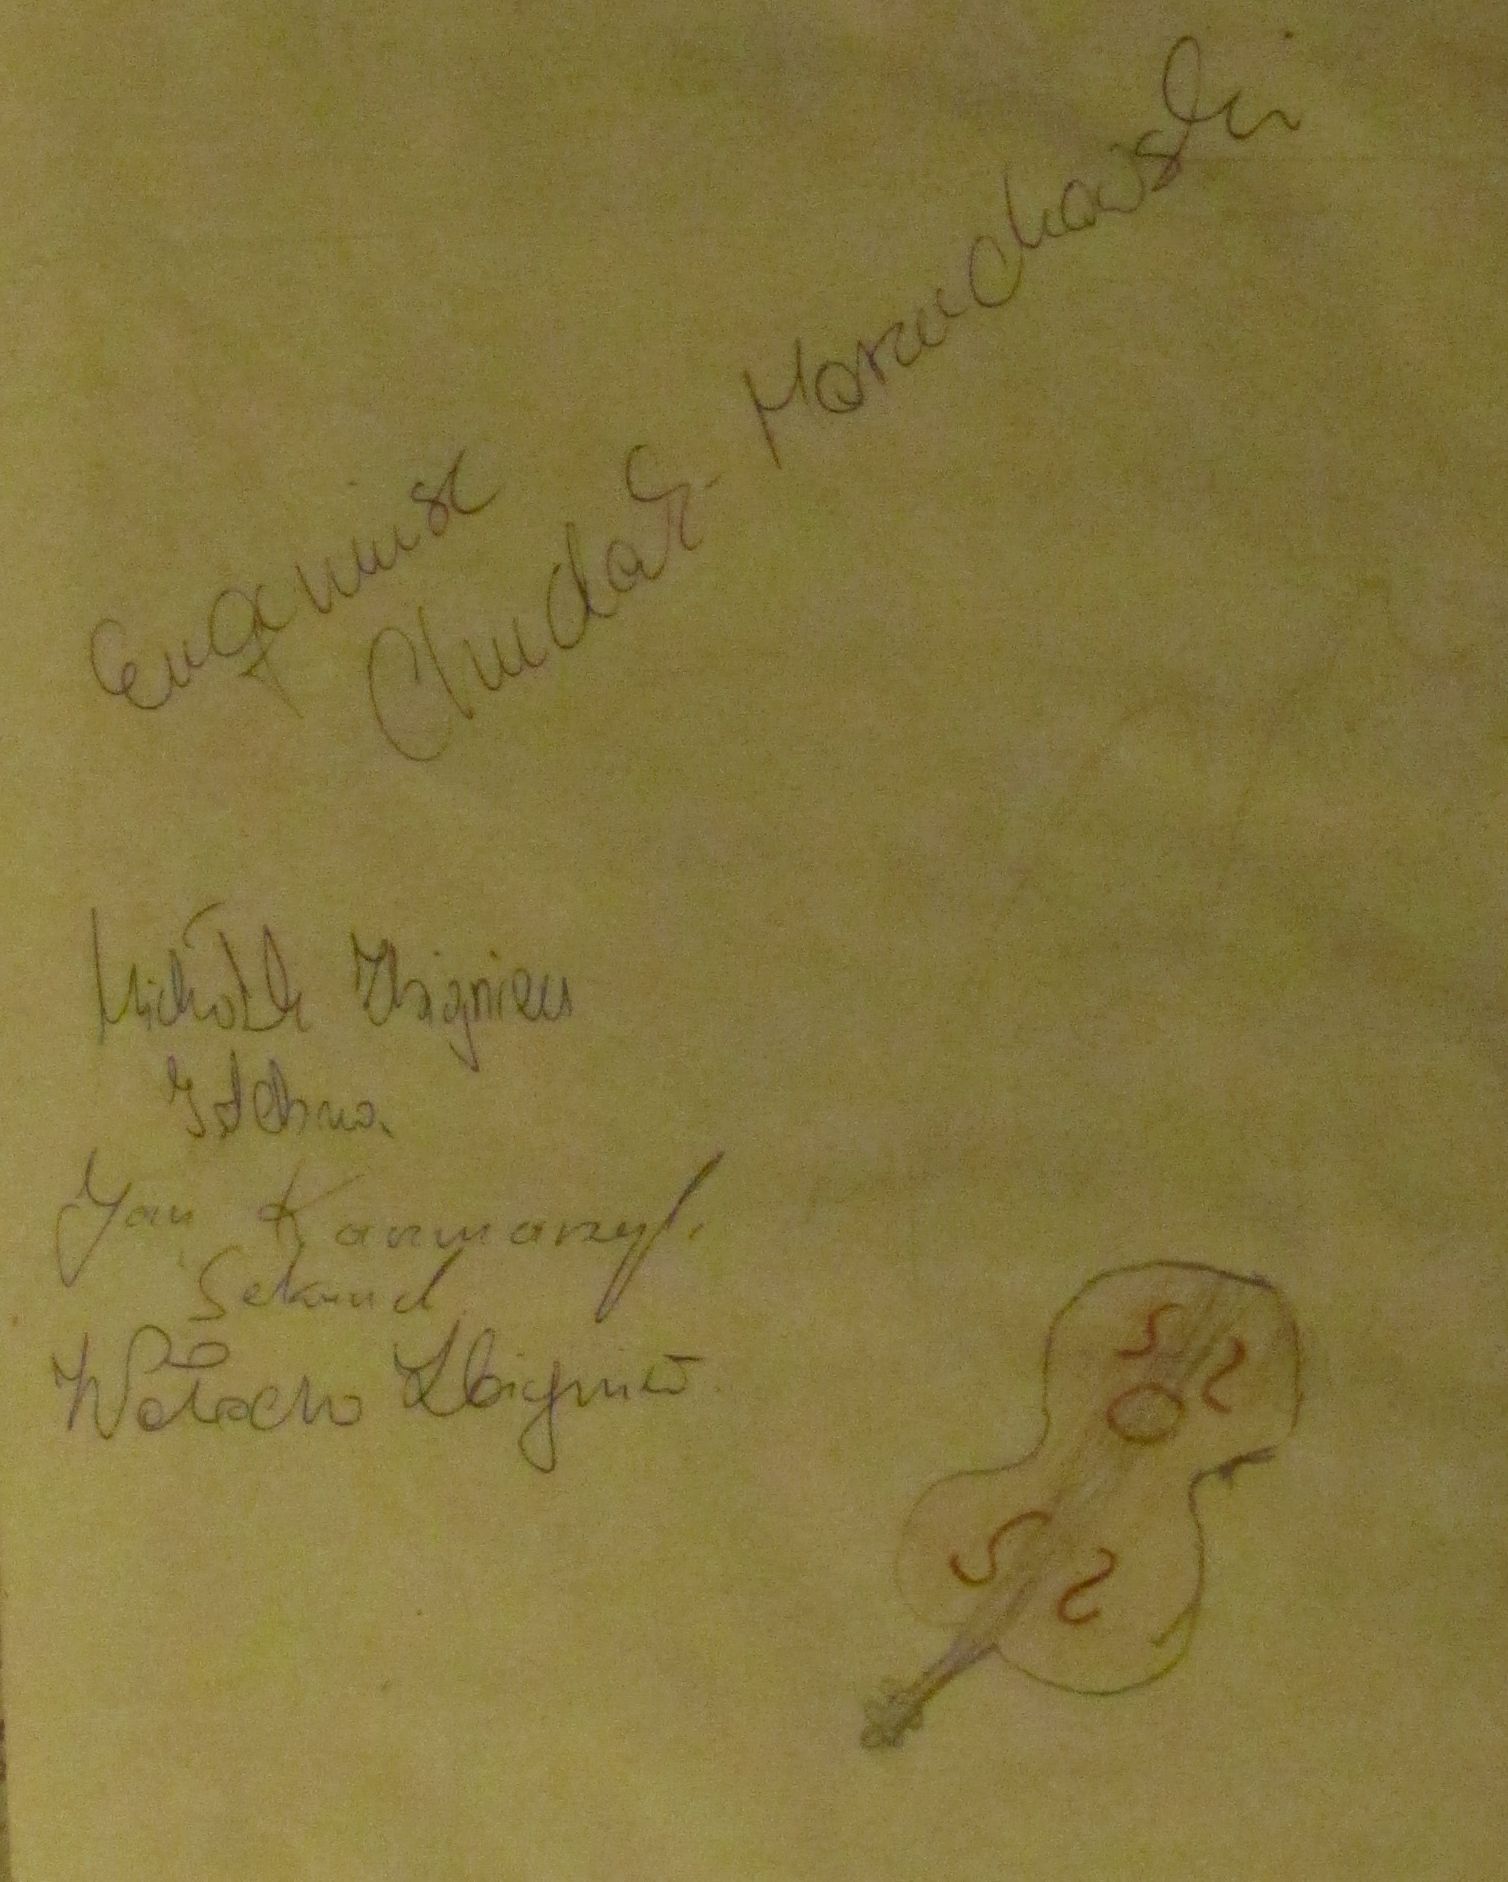 Eugeniusz
Chudak - Morzuchowski
Michałek Zbigniew
Istebna
Jan Kaczmarzyk.
Sekund
Wałach Zbigniew